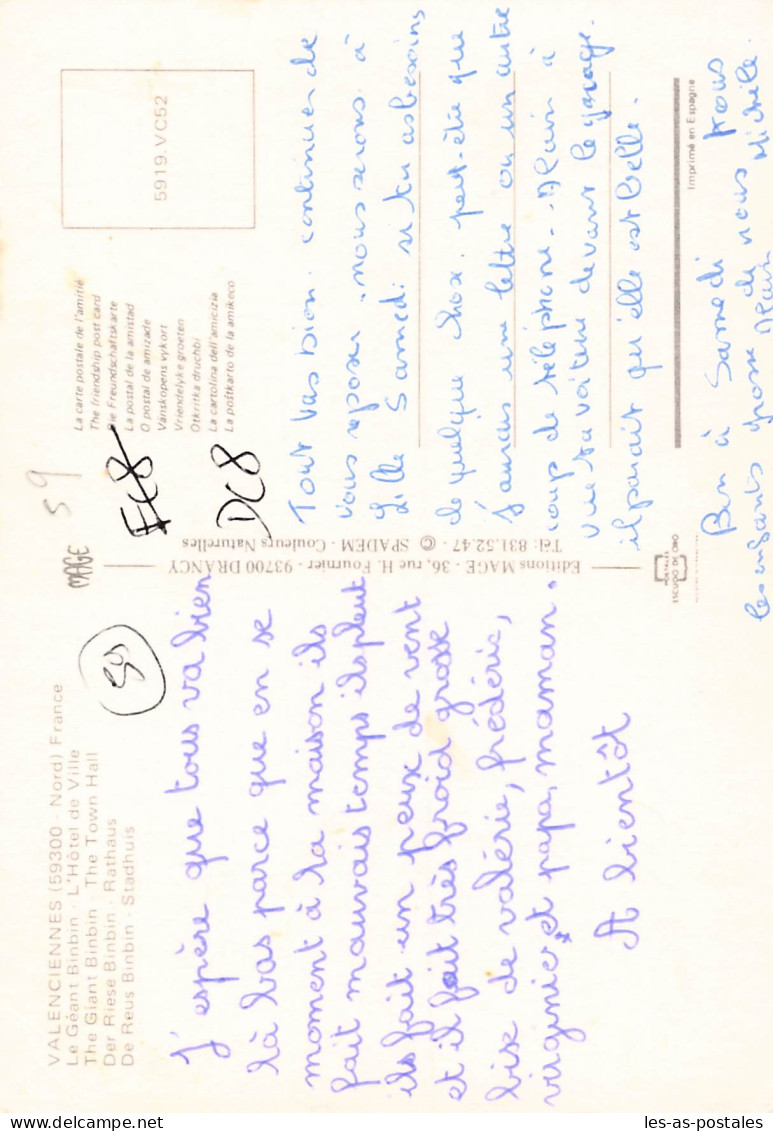 VALENCIENNES (59300 - Nord) France
Le Géant Binbin - L'Hôtel de Ville
The Giant Binbin - The Town Hall
Der Riese Binbin - Rathaus
De Reus Binbin - Stadhuis
50
J'espère que tous va bien
là bas parce que en se
moment à la maison ils
fait mauvais temps ils pleut
ils fait un peux de vent
et il fait très froid grosse
bise de valérie, frédéric,
virginie et papa, maman.
A bientôt
MAGE
59
FC8
DC8
Editions MAGE - 36, rue H. Fournier - 93700 DRANCY
Tél: 831.52.47 - © SPADEM - Couleurs Naturelles
La carte postale de l'amitié
The friendship post card
Die Freundschaftskarte
La postal de la amistad
O postal de amizade
Vänskopens vykort
Vriendelyke groeten
Otkritka druchbi
La cartolina dell'amicizia
La poŝtkarto de la amikeco
5919.VC52
Tout vas bien. continuer de
vous reposer. nous serons à
Lille Samedi si tu as besoins
de quelque chose. peut-être que
j'aurais une lettre ou un autre
coup de téléphone - Alain à
vue ta voiture devant le garage.
il parait qu'elle est belle.
Ben à Samedi tous
les enfants grosse de nous
Alain Michèle.
POSTALES
ESCUDO DE ORO
Imprimé en Espagne
les-as-postales